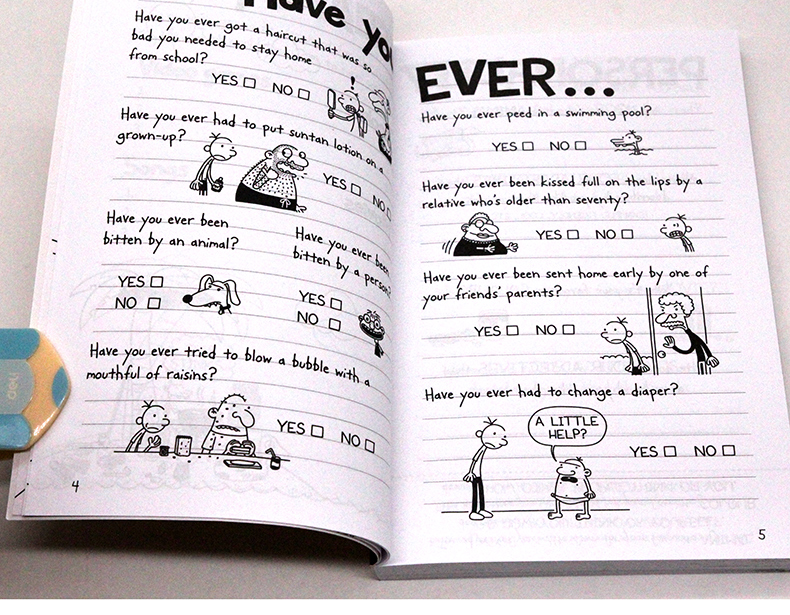 Have you
Have you ever got a haircut that was so
bad you needed to stay home
from school?
YES NO
!
Have you ever had to put suntan lotion on a
grown-up?
YES
NO
Have you ever been
bitten by an animal?
YES
NO
Have you ever been
bitten by a person?
YES
NO
Have you ever tried to blow a bubble with a
mouthful of raisins?
YES NO
4
EVER...
Have you ever peed in a swimming pool?
YES NO
Have you ever been kissed full on the lips by a
relative who's older than seventy?
YES NO
Have you ever been sent home early by one of
your friends' parents?
YES NO
Have you ever had to change a diaper?
A LITTLE
HELP?
YES NO
5
deli